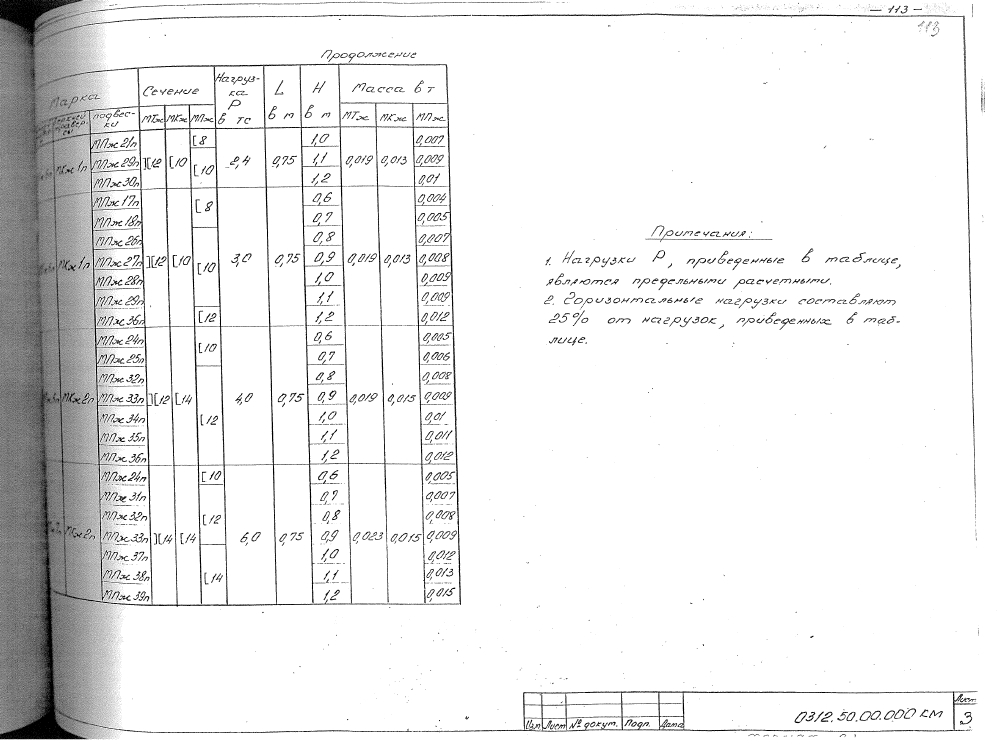 — 113 —
113
Продолжение
Марка Сечение Нагруз-ка Р в тс L в м H в м Масса в т
подвес-ки МТж МКж МПж МТж МКж МПж
МКж 1п МПж 21п ][12 [10 [8 2,4 0,75 1,0 0,019 0,013 0,007
МПж 29п [10 1,1 0,009
МПж 30п 1,2 0,01
МКж 1п МПж 17п ][12 [10 [8 3,0 0,75 0,6 0,019 0,013 0,004
МПж 18п 0,7 0,005
МПж 26п [10 0,8 0,007
МПж 27п 0,9 0,008
МПж 28п 1,0 0,009
МПж 29п 1,1 0,009
МПж 36п [12 1,2 0,012
МКж 2п МПж 24п ][12 [14 [10 4,0 0,75 0,6 0,019 0,015 0,005
МПж 25п 0,7 0,006
МПж 32п [12 0,8 0,008
МПж 33п 0,9 0,009
МПж 34п 1,0 0,01
МПж 35п 1,1 0,011
МПж 36п 1,2 0,012
МКж 2п МПж 24п ][14 [14 [10 6,0 0,75 0,6 0,023 0,015 0,005
МПж 31п [12 0,7 0,007
МПж 32п 0,8 0,008
МПж 33п 0,9 0,009
МПж 37п [14 1,0 0,012
МПж 38п 1,1 0,013
МПж 39п 1,2 0,015
Примечания:
1. Нагрузки Р, приведенные в таблице,
являются предельными расчетными.
2. Горизонтальные нагрузки составляют
25% от нагрузок, приведенных в таб-
лице.
Изм Лист № докум. Подп. Дата
0312.50.00.000 КМ
Лист
3